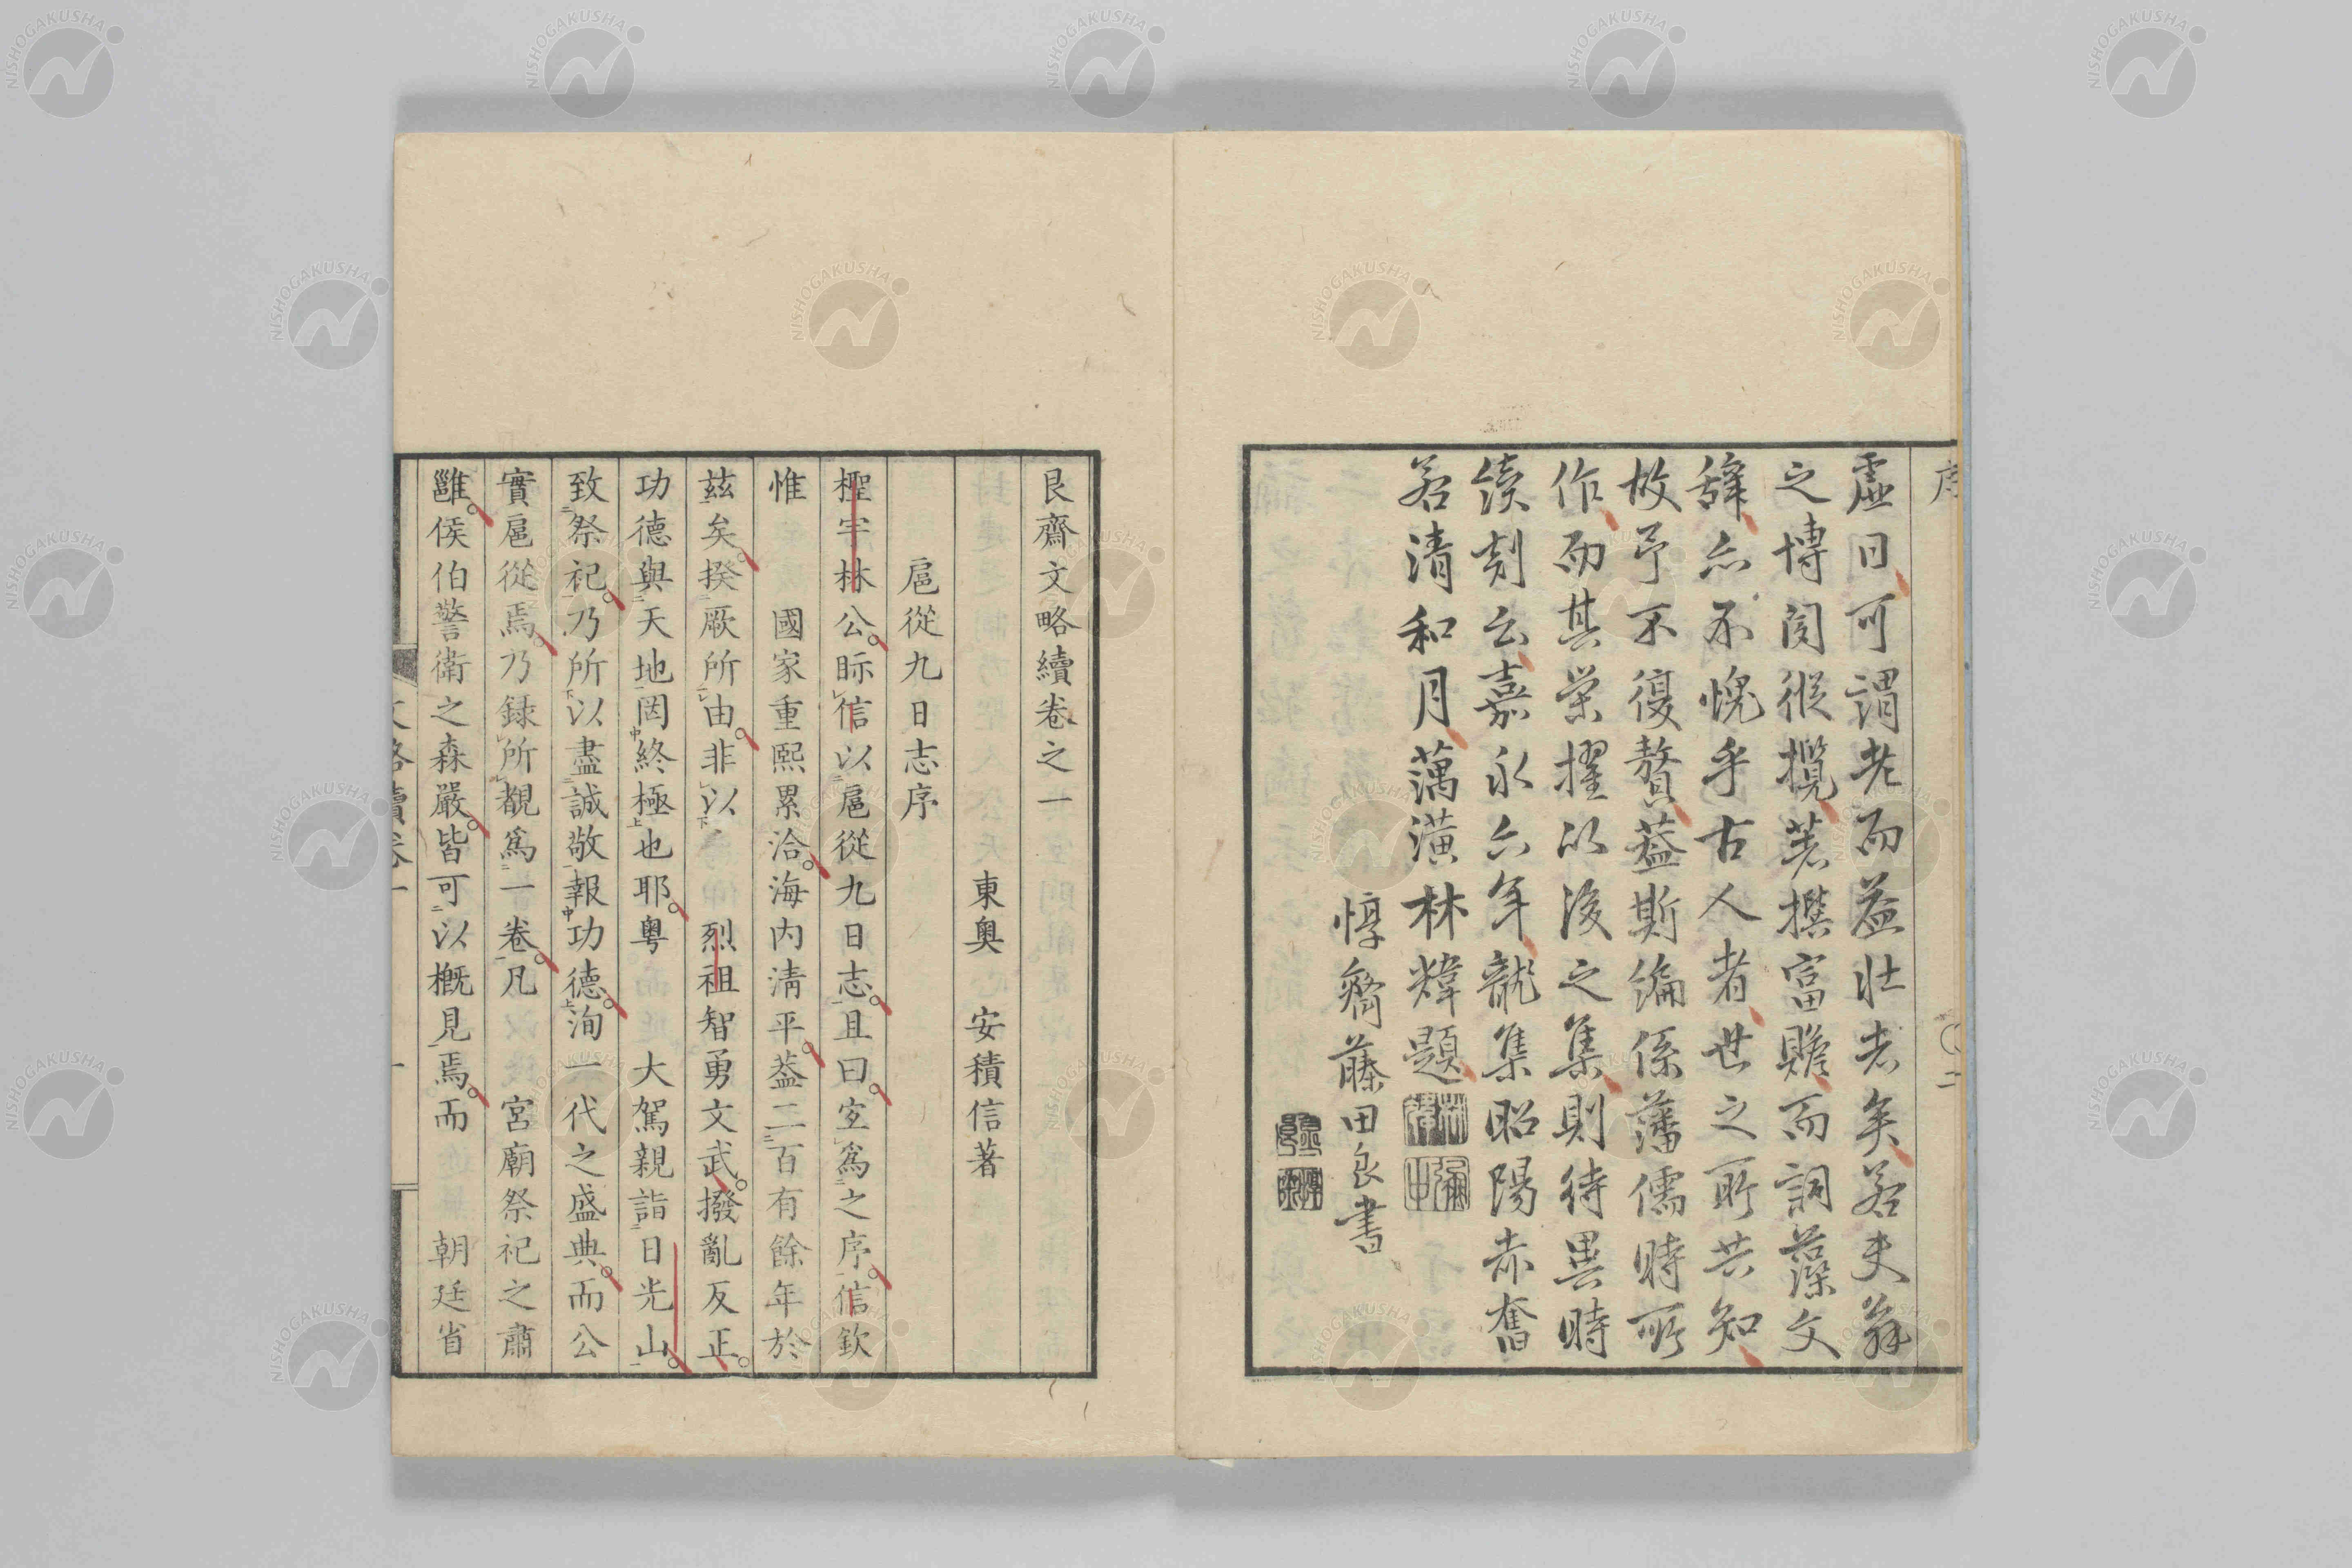 虛日可謂老而益壯者矣若夫翁
之博閱縱攬著撰富贍而詞藻文
辭亦不愧乎古人者世之所共知
故予不復贅葢斯編係藩儒時所
作而其榮擢以後之集則待異時
續刻云嘉永六年龍集昭陽赤奮
若清和月藕潢林煒題
惇齋藤田良書
艮齋文略續卷之一
東奥　安積信著
扈從九日志序
檉宇林公眎信以扈從九日志且曰㝎爲之序信欽
惟　國家重熙累洽海内淸平葢二百有餘年於
兹矣揆厥所由非以　烈祖智勇文武撥亂反正
功德與天地罔終極也耶粤　大駕親詣日光山
致祭祀乃所以盡誠敬報功德洵一代之盛典而公
實扈從焉乃録所覩爲一卷凡　宮廟祭祀之肅
雝侯伯警衛之森嚴皆可以槪見焉而　朝廷省
文略續卷一
一
NISHOGAKUSHA